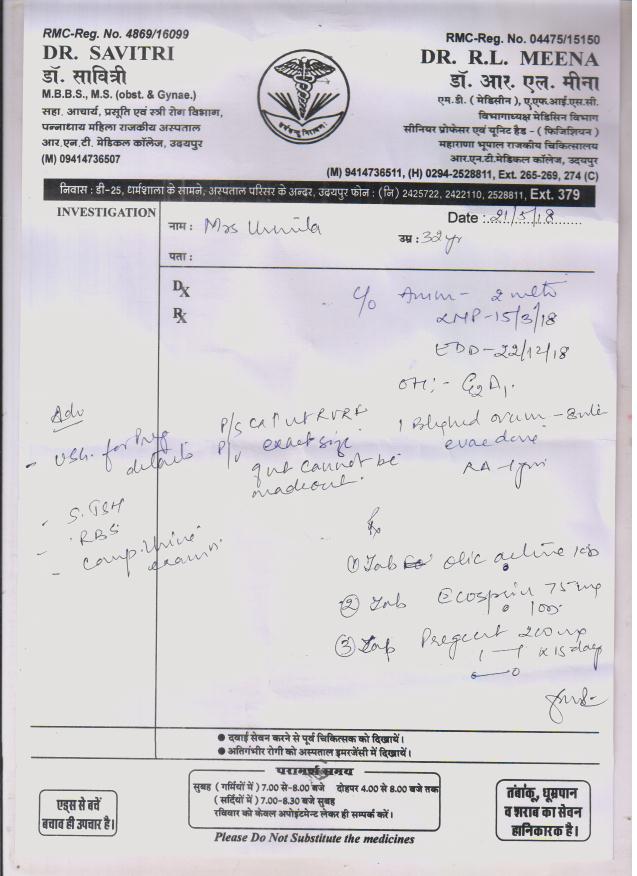 RMC-Reg. No. 4869/16099
DR. SAVITRI
डॉ. सावित्री
M.B.B.S., M.S. (obst. & Gynae.)
सहा. आचार्य, प्रसूति एवं स्त्री रोग विभाग,
पन्नाधाय महिला राजकीय अस्पताल
आर.एन.टी. मेडिकल कॉलेज, उदयपुर
(M) 09414736507
RMC-Reg. No. 04475/15150
DR. R.L. MEENA
डॉ. आर. एल. मीना
एम.डी. ( मेडिसीन ), ए.एफ.आई.एस.सी.
विभागाध्यक्ष मेडिसिन विभाग
सीनियर प्रोफेसर एवं यूनिट हैड - ( फिजिशियन )
महाराणा भूपाल राजकीय चिकित्सालय
आर.एन.टी.मेडिकल कॉलेज, उदयपुर
(M) 9414736511, (H) 0294-2528811, Ext. 265-269, 274 (C)
निवास : डी-25, धर्मशाला के सामने, अस्पताल परिसर के अन्दर, उदयपुर फोन : (नि) 2425722, 2422110, 2528811, Ext. 379
INVESTIGATION
नाम : Mrs Urmila
Date : 21/5/18
उम्र : 32 yr
पता :
Dx
Rx
c/o Amm - 2 mth
LMP - 15/3/18
EDD - 22/12/18
OH :- G2A1
1 Blighted ovum -
evac done
Adv
- USG. for Preg
details
P/S Cx P/V ut RVRF
P/V exact size
cannot be
madeout.
- S. TSH
- RBS
- Comp. Urine
examn.
Rx
① Tab olic active
② Tab Ecosprin 75 mg
③ Cap Pregeert 200 mg
x 15 days
● दवाई सेवन करने से पूर्व चिकित्सक को दिखायें।
● अतिगंभीर रोगी को अस्पताल इमरजेंसी में दिखायें।
परामर्श समय
सुबह ( गर्मियों में ) 7.00 से-8.00 बजे दोहपर 4.00 से 8.00 बजे तक
( सर्दियों में ) 7.00-8.30 बजे सुबह
रविवार को केवल अपोइंटमेन्ट लेकर ही सम्पर्क करें।
एड्स से बचें
बचाव ही उपचार है।
तंबाकू, धूम्रपान
व शराब का सेवन
हानिकारक है।
Please Do Not Substitute the medicines